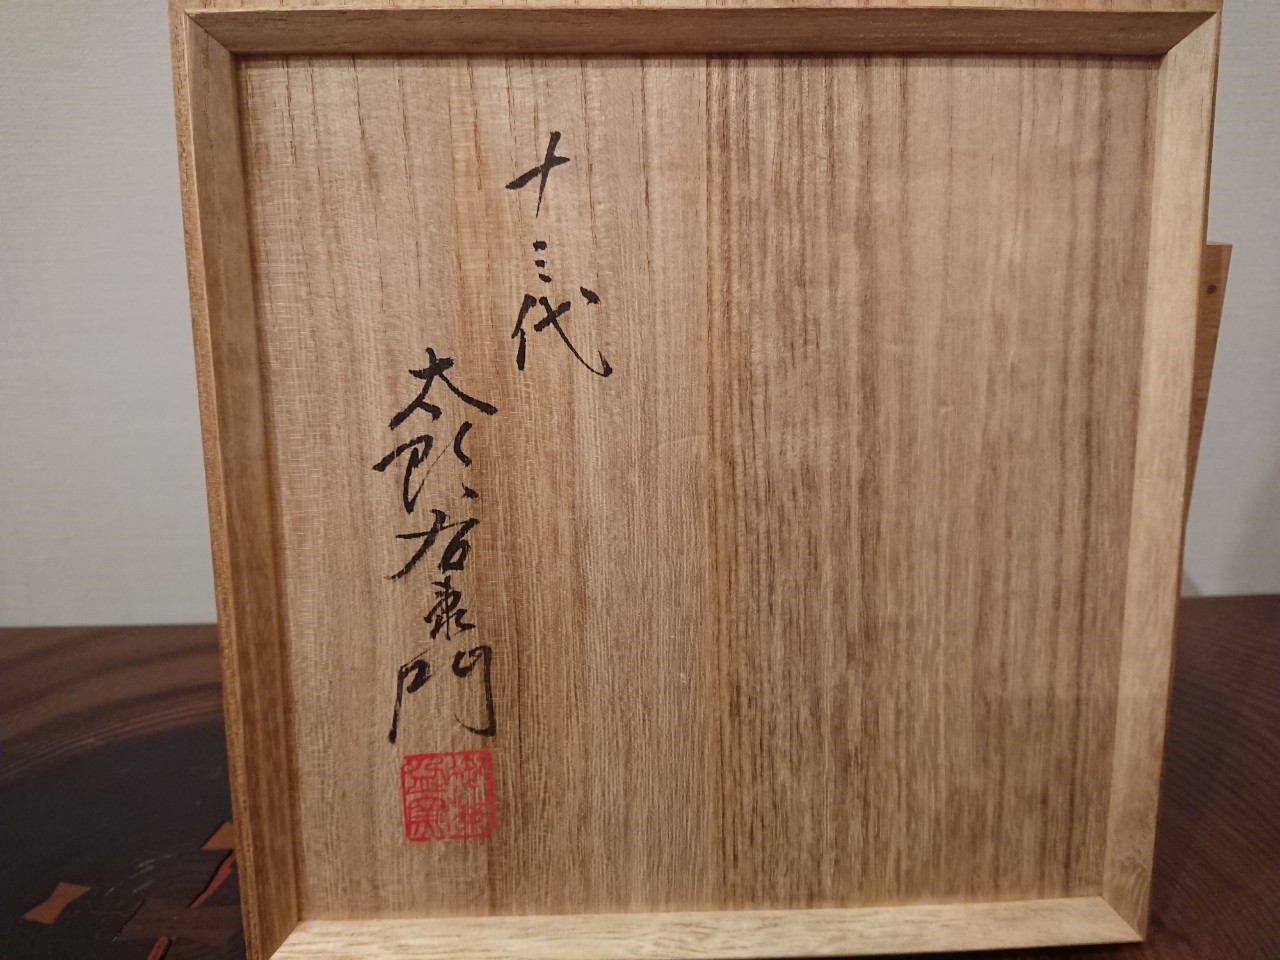 十三代
太郎右衛門